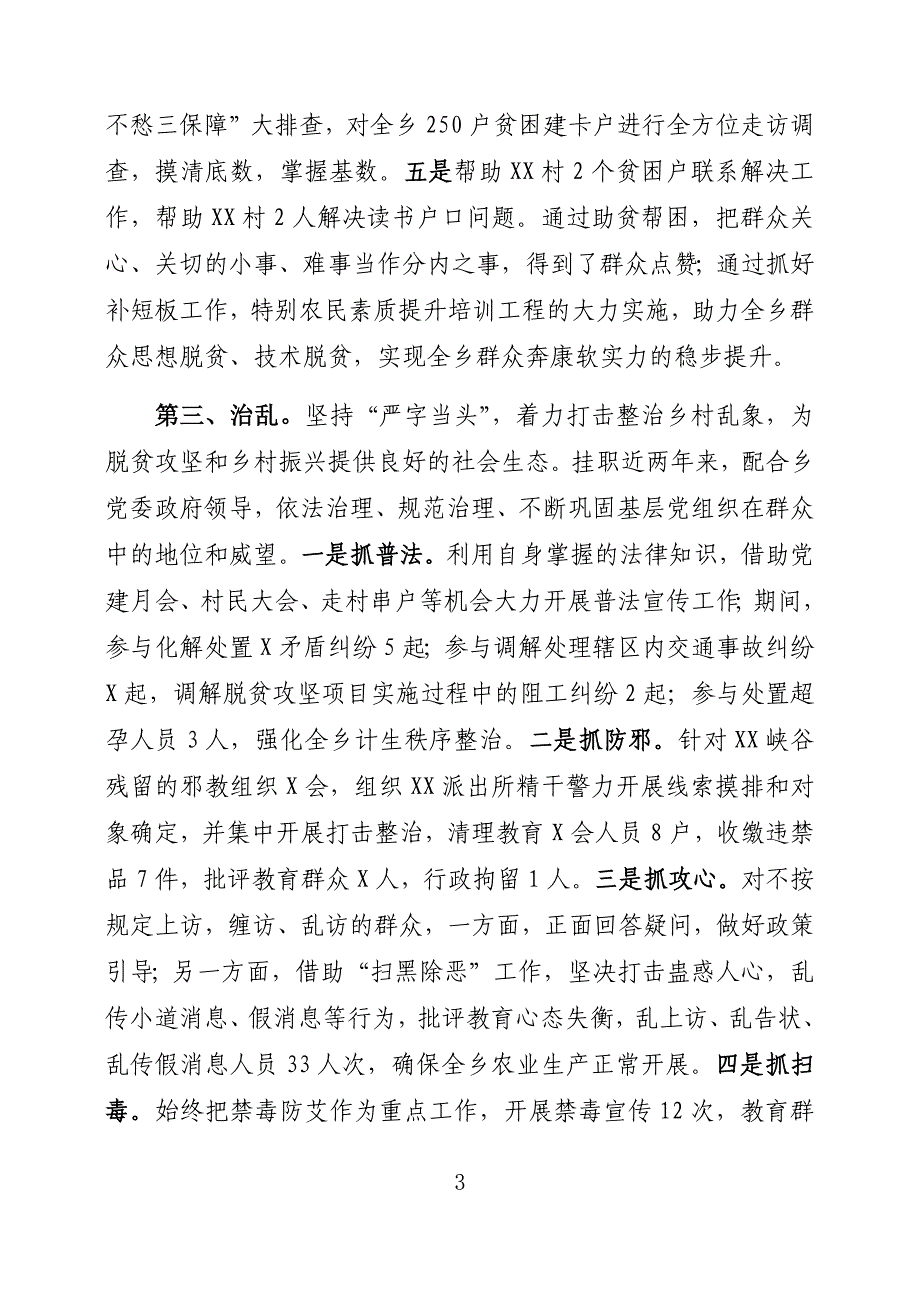 不愁三保障”大排查，对全乡 250 户贫困建卡户进行全方位走访调
查，摸清底数，掌握基数。五是帮助 XX 村 2 个贫困户联系解决工
作，帮助 XX 村 2 人解决读书户口问题。通过助贫帮困，把群众关
心、关切的小事、难事当作分内之事，得到了群众点赞；通过抓好
补短板工作，特别农民素质提升培训工程的大力实施，助力全乡群
众思想脱贫、技术脱贫，实现全乡群众奔康软实力的稳步提升。
第三、治乱。坚持“严字当头”，着力打击整治乡村乱象，为
脱贫攻坚和乡村振兴提供良好的社会生态。挂职近两年来，配合乡
党委政府领导，依法治理、规范治理、不断巩固基层党组织在群众
中的地位和威望。一是抓普法。利用自身掌握的法律知识，借助党
建月会、村民大会、走村串户等机会大力开展普法宣传工作；期间，
参与化解处置 X 矛盾纠纷 5 起；参与调解处理辖区内交通事故纠纷
X 起，调解脱贫攻坚项目实施过程中的阻工纠纷 2 起；参与处置超
孕人员 3 人，强化全乡计生秩序整治。二是抓防邪。针对 XX 峡谷
残留的邪教组织 X 会，组织 XX 派出所精干警力开展线索摸排和对
象确定，并集中开展打击整治，清理教育 X 会人员 8 户，收缴违禁
品 7 件，批评教育群众 X 人，行政拘留 1 人。三是抓攻心。对不按
规定上访，缠访、乱访的群众，一方面，正面回答疑问，做好政策
引导；另一方面，借助“扫黑除恶”工作，坚决打击蛊惑人心，乱
传小道消息、假消息等行为，批评教育心态失衡，乱上访、乱告状、
乱传假消息人员 33 人次，确保全乡农业生产正常开展。四是抓扫
毒。始终把禁毒防艾作为重点工作，开展禁毒宣传 12 次，教育群
3